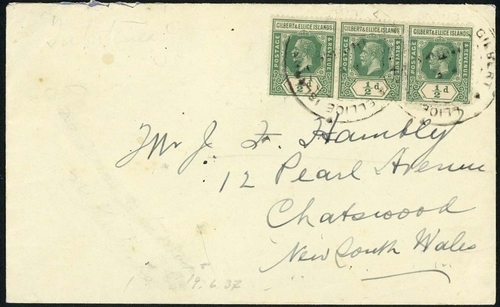 GILBERT & ELLICE ISLANDS GILBERT & ELLICE ISLANDS GILBERT & ELLICE ISLANDS
POSTAGE & REVENUE POSTAGE & REVENUE POSTAGE & REVENUE
½d ½d ½d
GILBERT
ELLICE IS
ELLICE
Mr J. F. Hambly
12 Pearl Avenue
Chatswood
New South Wales
19.6.37